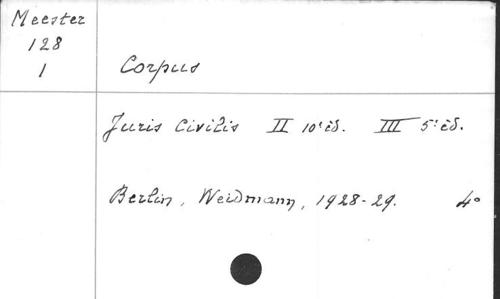 Meester
128
1
Corpus
Juris Civilis II 10e éd. III 5e éd.
Berlin, Weidmann, 1928-29. 4°